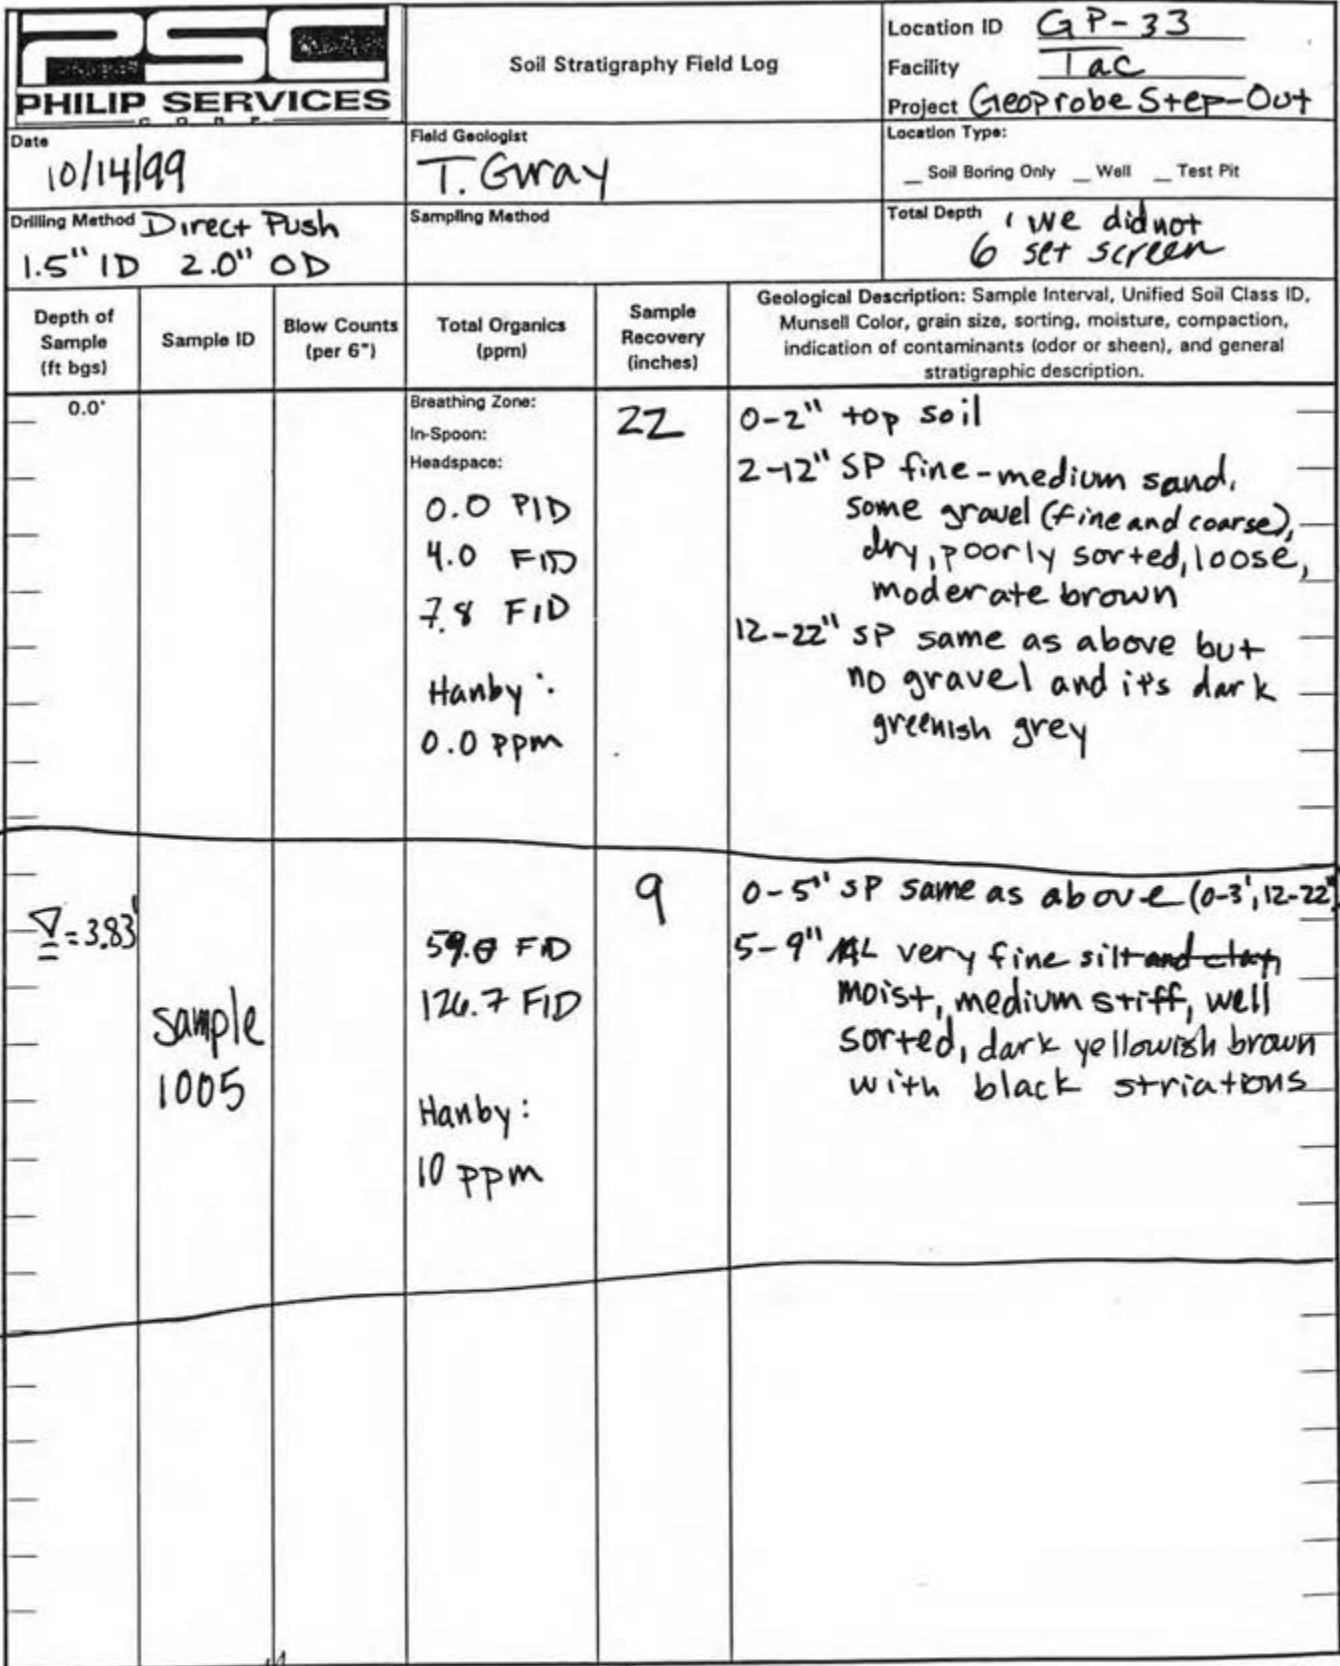 PSC
PHILIP SERVICES
CORP.
Soil Stratigraphy Field Log
Location ID GP-33
Facility Tac
Project Geoprobe Step-Out
Date
10/14/99
Field Geologist
T. Gray
Location Type:
_ Soil Boring Only _ Well _ Test Pit
Drilling Method Direct Push
1.5" ID 2.0" OD
Sampling Method
Total Depth
6' we did not
set screen
Depth of
Sample
(ft bgs)
Sample ID
Blow Counts
(per 6")
Total Organics
(ppm)
Sample
Recovery
(inches)
Geological Description: Sample Interval, Unified Soil Class ID,
Munsell Color, grain size, sorting, moisture, compaction,
indication of contaminants (odor or sheen), and general
stratigraphic description.
0.0'
Breathing Zone:
In-Spoon:
Headspace:
0.0 PID
4.0 FID
7.8 FID
Hanby:
0.0 ppm
22
0-2" top soil
2-12" SP fine-medium sand,
some gravel (fine and coarse),
dry, poorly sorted, loose,
moderate brown
12-22" SP same as above but
no gravel and it's dark
greenish grey
∇=3.83'
Sample
1005
FID
126.7 FID
Hanby:
10 ppm
9
0-5" SP same as above (0-3', 12-22")
5-9" ML very fine silt and clay,
moist, medium stiff, well
sorted, dark yellowish brown
with black striations